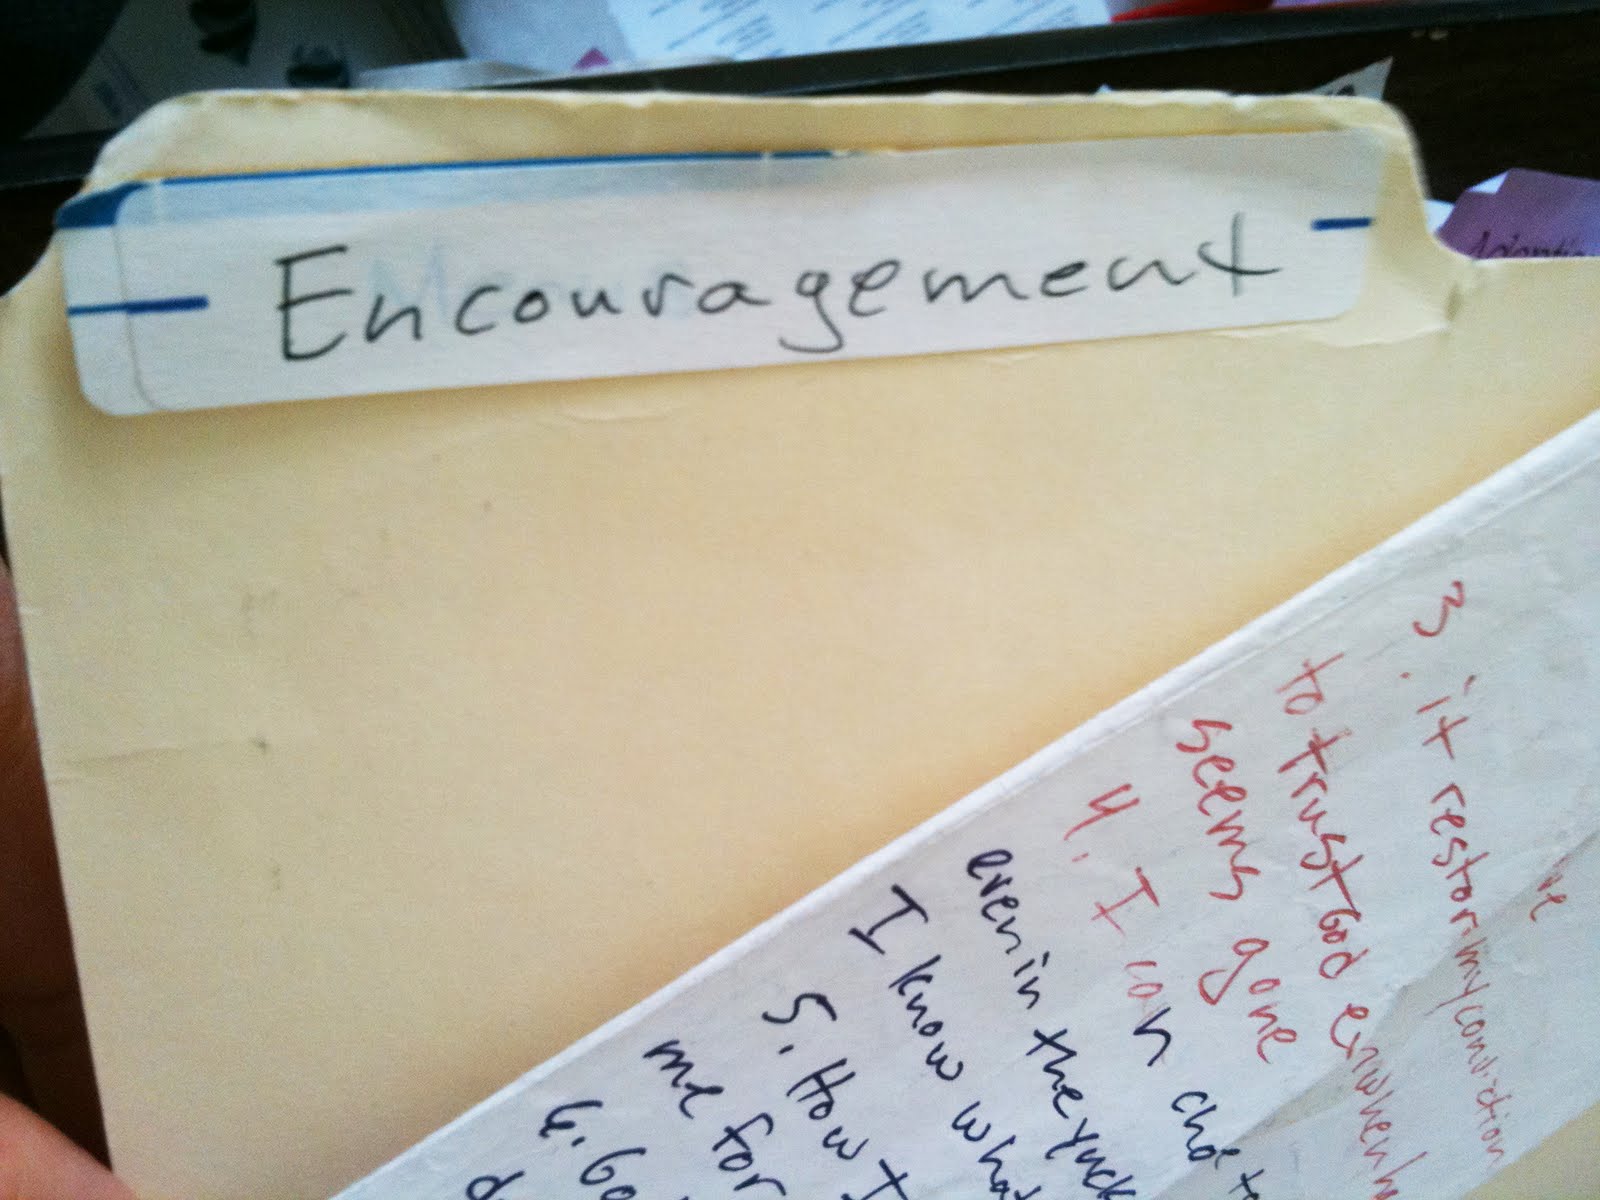 Encouragement
3. it restor my conviction
to trust God even when h
seems gone
4. I can cho to
even in the yuck
I know what
5. How I
me for
6. Go